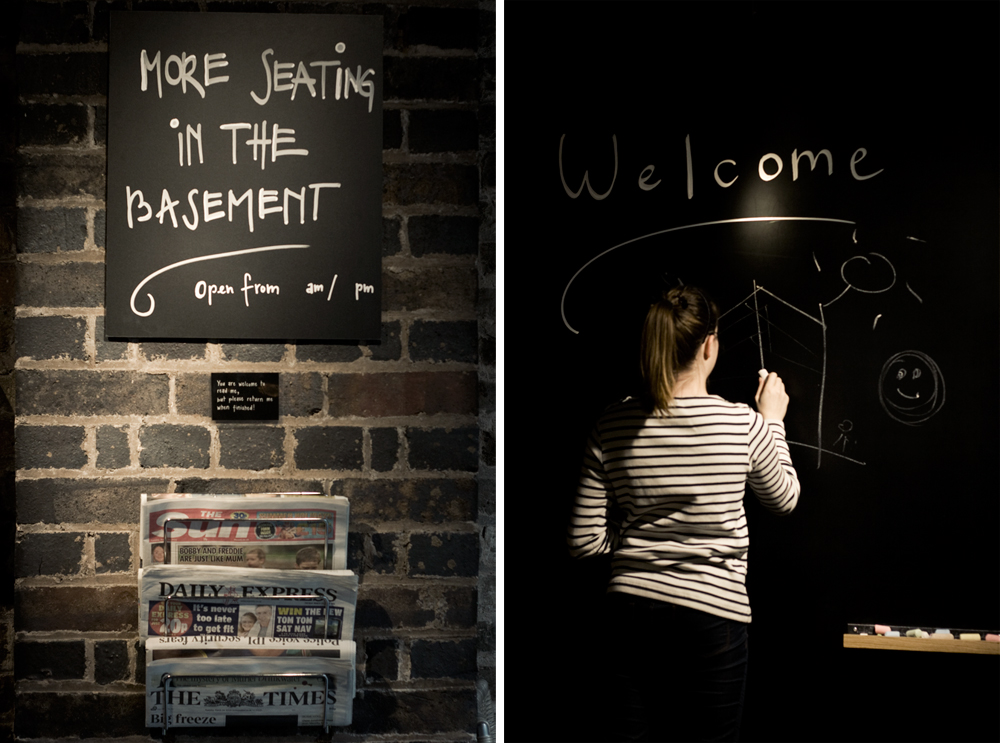 MORE SEATING
IN THE
BASEMENT
Open from am/ pm
You are welcome to
read me,
but please return me
when finished!
THE
Sun
30p
BOBBY AND FREDDIE
ARE JUST LIKE MUM
DAILY EXPRESS
It's never
too late
to get fit
WIN THE NEW
TOM TOM
SAT NAV
Police voice IPL security fears
THE TIMES
Big freeze
Welcome